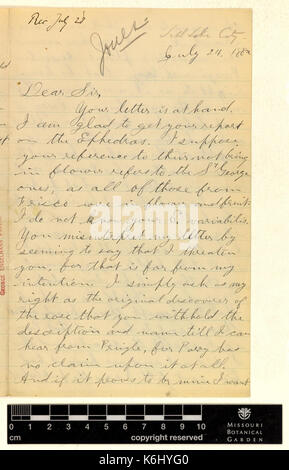 Rec July 28
Jones
Salt Lake City
July 24, 1882
Dear Sir,
Your letter is at hand.
I am glad to get your report
on the Ephedras. I suppose
your reference to theirs not being
in flower refers to the St George
ones, as all of those from
Frisco were in flower and fruit.
I do not know your E variabilis.
You misinterpret my letter by
seeming to say that I threaten
you, for that is far from my
intention. I simply ask as my
right as the original discoverer of
the rose that you withhold the
description and name till I can
hear from Pringle, for Parry has
no claim upon it at all.
And if it proves to be mine I want
GEORGE ENGELMANN PAPERS
0 1 2 3 4 5 6 7 8 9 10
cm copyright reserved
MISSOURI
BOTANICAL
GARDEN
alamy
alamy
Image ID: K6HYG0
www.alamy.com